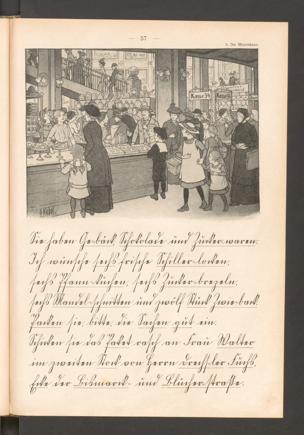 — 57 —
5. Im Warenhaus.
Kasse 34
Kasse
Sie haben Gebäck, Schokolade und Zuckerwaren.
Ich wünsche sechs frische Schillerlocken,
sechs Pfannkuchen, sechs Zuckerbrezeln,
sechs Mandelschnitten und zwölf Stück Zwieback.
Packen sie bitte die Sachen gut ein.
Schicken sie das Paket rasch an Frau Walter
im zweiten Stock von Herrn Drechsler Fuchs,
Ecke der Bismarck- und Blücherstraße.